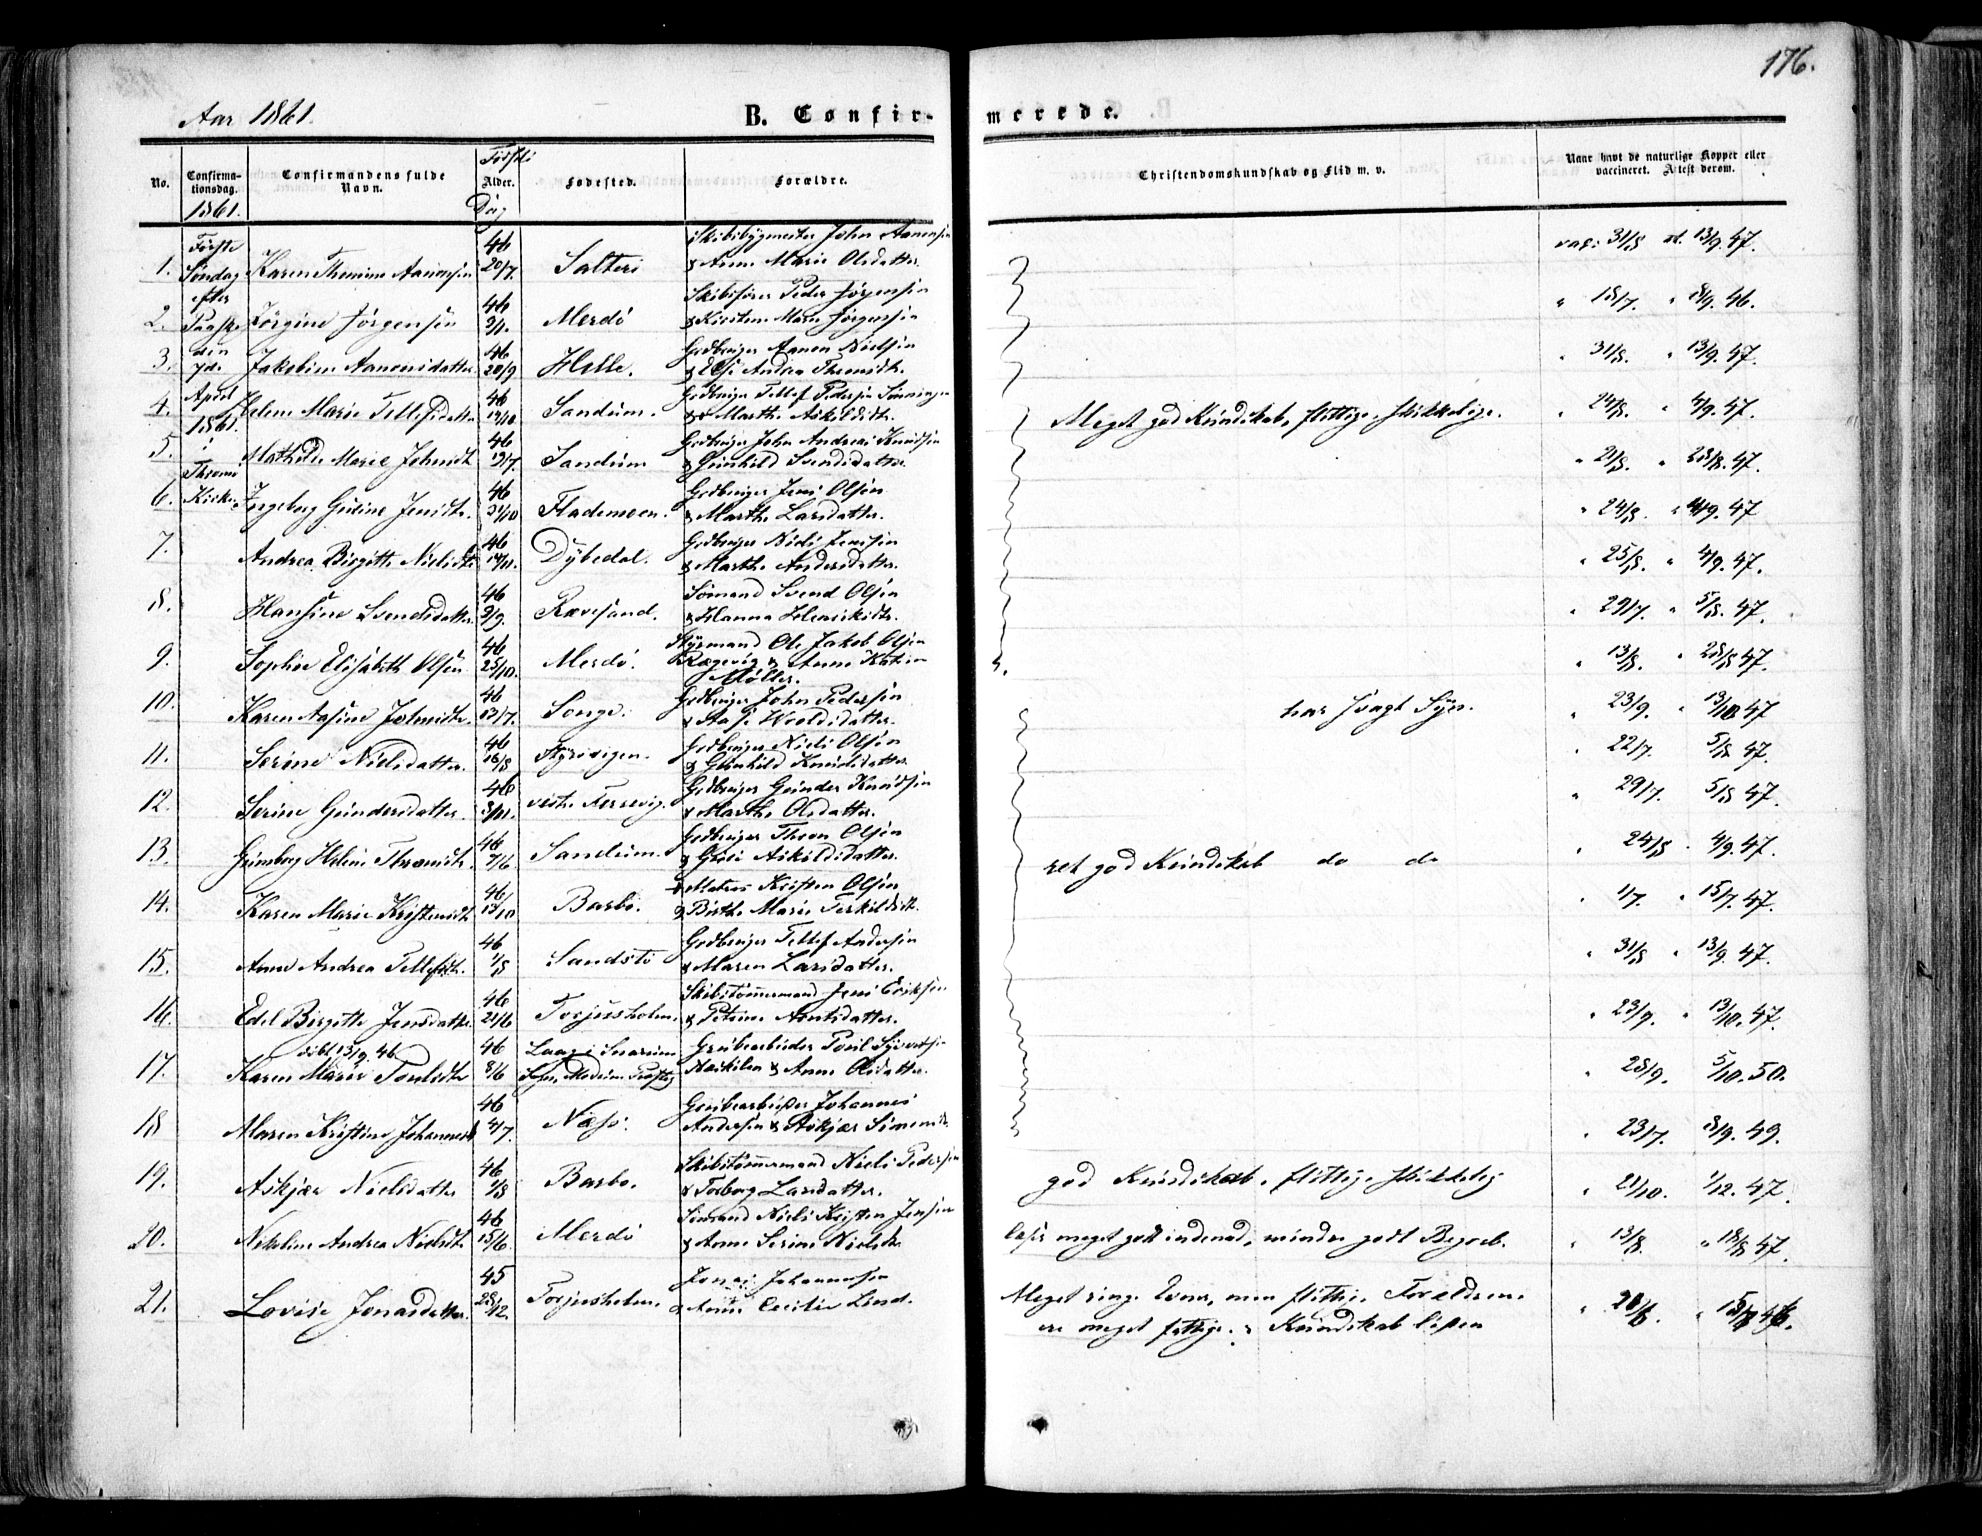 176.
Aar 1861.
B. Confirmerede.
No.
Confirmationsdag.
Confirmandens fulde Navn.
Alder.
Fødested.
Forældre.
Christendomskundskab og Flid m. v.
Naar havt de naturlige Kopper eller vaccineret. Attest derom.
1861.
Første Søndag efter Paaske den 7de April 1861 i Thromø Kirke.
1. Karen Thomine Aanensen 46 20/7. Salterø Skibsbygmester John Aanensen
& Anne Marie Olsdatter. vac: 31/8 at. 13/9. 47.
2. Jørgine Jørgensen 46 Merdø Skibsfører Peder Jørgensen
& Kirsten Marie Jørgensen " 18/7. " 46.
3. Jakobine Aanensdatter 46 20/9 Helle. Gdbruger Aanon Nielsen
& Else Andrea Thomisdt. " 31/8. " 13/9. 47.
4. Helene Marie Tellefsdatter 46 Sandum. Gdbruger Tellef Pedersen
& Marthe Askildsdt. Meget god Kundskab, flittige, skikkelige. " 24/8. " 4/9. 47.
5. Mathilde Marie Johnsdt. 46 19/7. Sandum Gdbruger John Andreas Knudsen
& Gunhild Svendsdatter. " 21/8. " 28/8. 47.
6. Ingeborg Guline Jensdt. 46 31/10 Flademoen. Gdbruger Jens Olsen
& Marthe Larsdatter. " 24/8. " 4/9. 47
7. Andrea Birgitte Nielsdt. 46 Dybedal. Gdbruger Niels Jensen
& Marthe Andersdatter. " 25/8. " 4/9. 47.
8. Hansine Svendsdatter. 46 9/9. Revesand. Sømand Svend Olsen
& Hanna Henriksdt. " 29/7. " 5/8. 47.
9. Sophie Elisabeth Olsen 46 25/10. Merdø. Styrmand Ole Jakob Olsen
& Anne Katrine
Møller. " 13/8. " 28/8 47.
10. Karen Aasine Johnsdtr. 46 23/7. Songe. Gdbruger John Pedersen
& Aase Woldsdatter. har svagt Syn. " 23/9. " 13/10 47
11. Serine Nielsdatter. 46 16/8 Gdbruger Niels Olsen
& Gunhild Knudsdatter " 22/7. 5/8 47.
12. Serine Gundersdatter. 46 3/11. vestre Færevig. Gdbruger Gunder Knudsen
& Marthe Olsdatter. " 29/7. 5/8 47.
13. Gunborg Helene Thomisdt. 46 7/6 Sandum. Gdbruger Thom Olsen
& Guri Askildsdatter. ret god Kundskab do do " 24/8 . 4/9. 47.
14. Karen Marie Kristensdt. 46 13/10 Barbo. Matros Kristen Olsen
& Birthe Marie Terkildsdt. " 1/7. " 15/7. 47.
15. Anne Andrea Tellefsdt. 46 1/8 Sandstø Gdbruger Tellef Andersen
& Maren Larsdatter. " 31/8 " 13/9. 47.
16. Edel Birgitte Jensdatter. 46 21/6 Torjusholm. Skibstømmermand Jens Eriksen
& Petrine Arntsdatter. " 23/9. " 13/10. 47.
døbt 13/9. 46
17. Karen Marie Poulsdtr 46 8/6 Snarum Grubearbeider Poul Syversen
& Anne Olsdatter. " 28/9. 5/10. 50.
18 Maren Kristine Johannesdt. 46 4/7. Næs. Grubearbeider Johannes
Andersen & Askjær Simonsdt. " 23/7. 8/9. 49.
19. Askjær Nielsdatter 46 1/8 Barbo. Skibstømmermand Niels Pedersen
& Torborg Larsdatter. god Kundskab, flittig, skikkelig " 21/10. 1/12. 47.
20. Nikoline Andrea Nielsdt. 46 15/6. Merdø Sømand Niels Kristen Jensen
& Anne Serine Nielsdt. læser meget godt indenad, mindre godt Begreb. " 13/8. " 18/8 47.
21. Lovise Jonasdatter. 45 28/12. Torjusholm. Jonas Johannesen
& Anne Cecilie Lind. Meget ringe Evner, men flittig. Forældrene
ere meget fattige. Kundskab liden